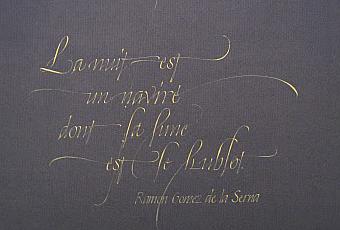 La nuit est
un navire
dont la lune
est le hublot.
Ramón Gomez de la Serna